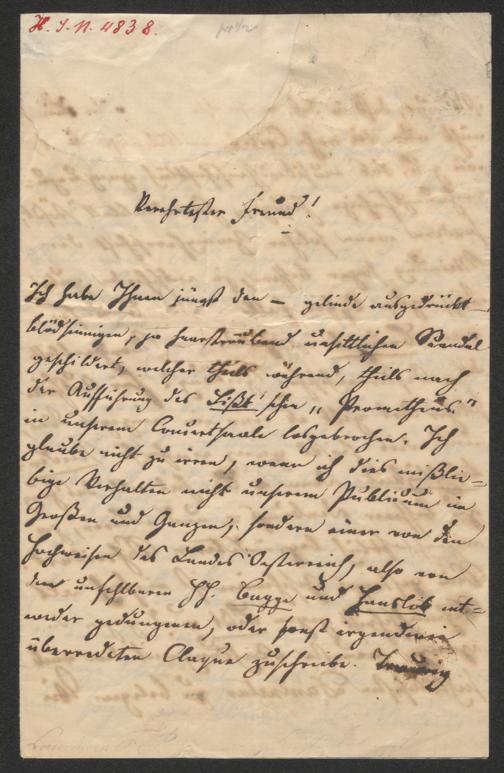 H. I. N. 4838.
Verehrtester Freund!
Ich habe Ihnen jüngst den – gelinde ausgedrückt
blödsinnigen, ja haarsträubend unsittlichen Scandal
geschildert, welcher theils während, theils nach
der Aufführung des Lißt'schen „Prometheus"
in unserem Concertsaale losgebrochen. Ich
glaube nicht zu irren, wenn ich dies mißlie-
bige Verhalten nicht unserem Publicum im
Großen und Ganzen, sondern einer von den
Hochweisen des Landes Oesterreich, also von
den unfehlbaren HH. Bagge und Hanslik ent-
weder gedungenen, oder sonst irgendwie
überredeten Claque zuschreibe. Traurig